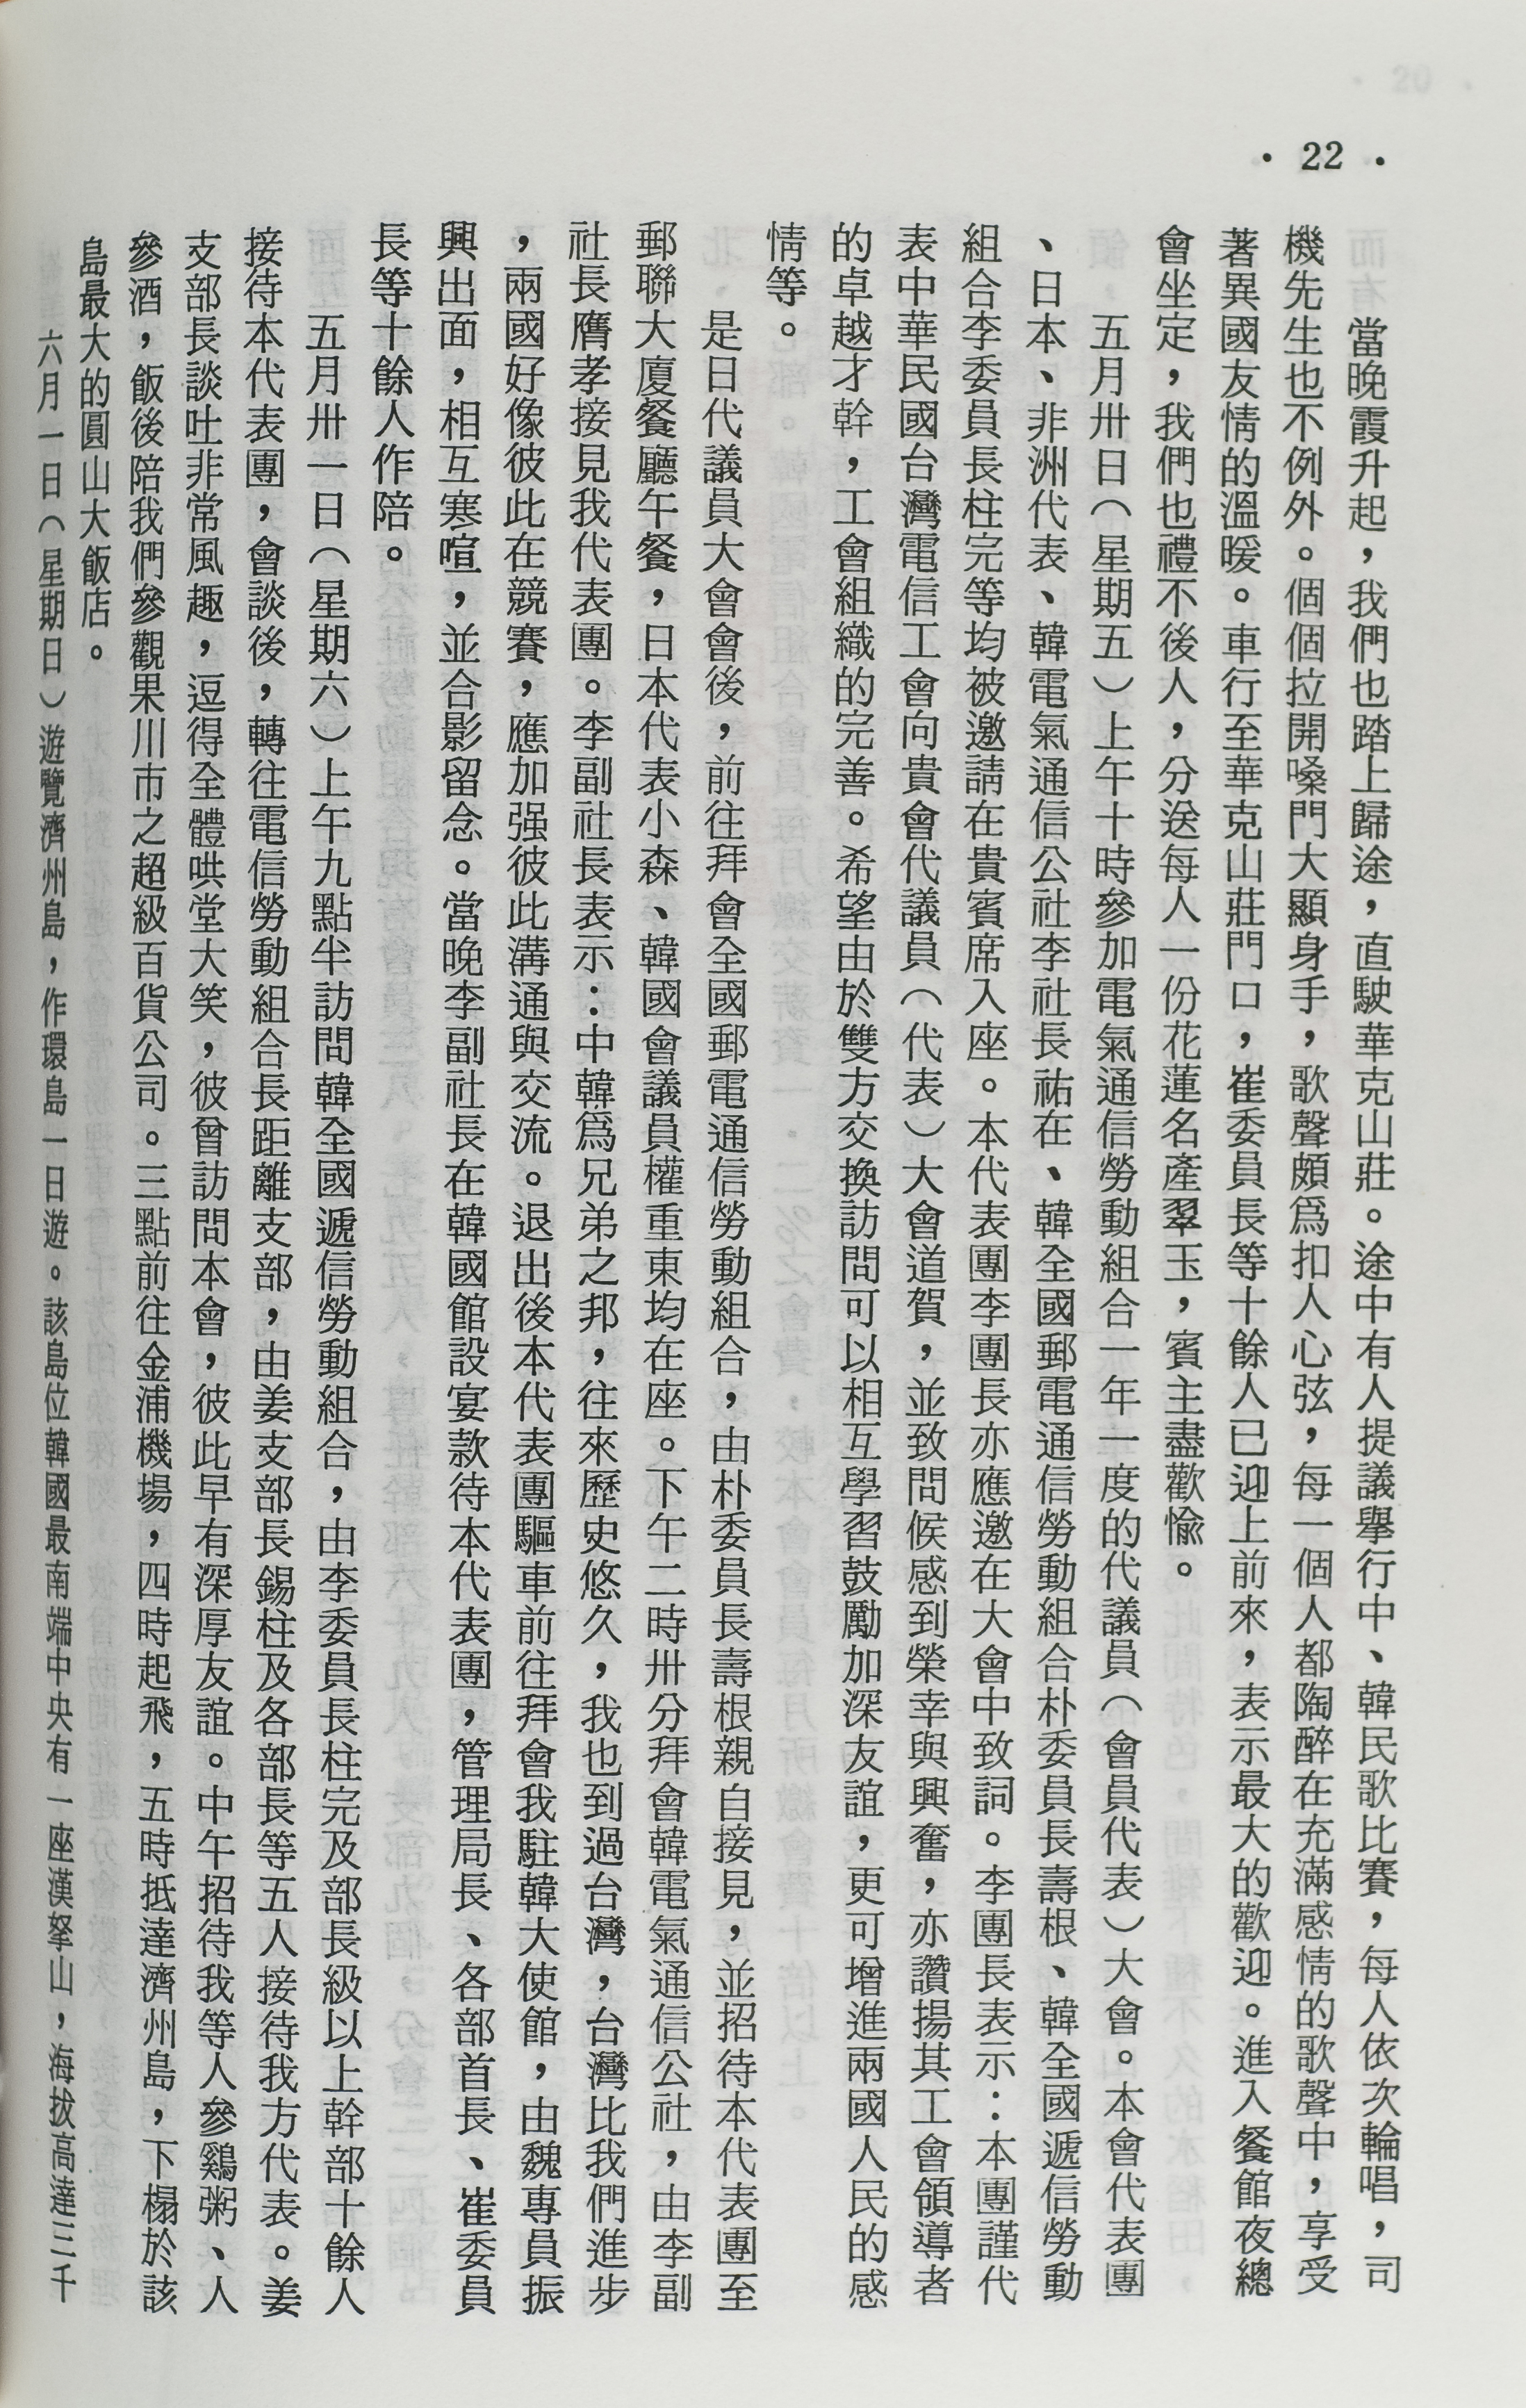 · 22 ·
當晚霞升起，我們也踏上歸途，直駛華克山莊。途中有人提議舉行中、韓民歌比賽，每人依次輪唱，司
機先生也不例外。個個拉開嗓門大顯身手，歌聲頗爲扣人心弦，每一個人都陶醉在充滿感情的歌聲中，享受
著異國友情的溫暖。車行至華克山莊門口，崔委員長等十餘人已迎上前來，表示最大的歡迎。進入餐館夜總
會坐定，我們也禮不後人，分送每人一份花蓮名產翠玉，賓主盡歡愉。
五月卅日（星期五）上午十時參加電氣通信勞動組合一年一度的代議員（會員代表）大會。本會代表團
、日本、非洲代表、韓電氣通信公社李社長祐在、韓全國郵電通信勞動組合朴委員長壽根、韓全國遞信勞動
組合李委員長柱完等均被邀請在貴賓席入座。本代表團李團長亦應邀在大會中致詞。李團長表示：本團謹代
表中華民國台灣電信工會向貴會代議員（代表）大會道賀，並致問候感到榮幸與興奮，亦讚揚其工會領導者
的卓越才幹，工會組織的完善。希望由於雙方交換訪問可以相互學習鼓勵加深友誼，更可增進兩國人民的感
情等。
是日代議員大會會後，前往拜會全國郵電通信勞動組合，由朴委員長壽根親自接見，並招待本代表團至
郵聯大廈餐廳午餐，日本代表小森、韓國會議員權重東均在座。下午二時卅分拜會韓電氣通信公社，由李副
社長膺孝接見我代表團。李副社長表示：中韓爲兄弟之邦，往來歷史悠久，我也到過台灣，台灣比我們進步
，兩國好像彼此在競賽，應加强彼此溝通與交流。退出後本代表團驅車前往拜會我駐韓大使館，由魏專員振
興出面，相互寒喧，並合影留念。當晚李副社長在韓國館設宴款待本代表團，管理局長、各部首長、崔委員
長等十餘人作陪。
五月卅一日（星期六）上午九點半訪問韓全國遞信勞動組合，由李委員長柱完及部長級以上幹部十餘人
接待本代表團，會談後，轉往電信勞動組合長距離支部，由姜支部長錫柱及各部長等五人接待我方代表。姜
支部長談吐非常風趣，逗得全體哄堂大笑，彼曾訪問本會，彼此早有深厚友誼。中午招待我等人參鷄粥、人
參酒，飯後陪我們參觀果川市之超級百貨公司。三點前往金浦機場，四時起飛，五時抵達濟州島，下榻於該
島最大的圓山大飯店。
六月一日（星期日）遊覽濟州島，作環島一日遊。該島位韓國最南端中央有一座漢拏山，海拔高達三千